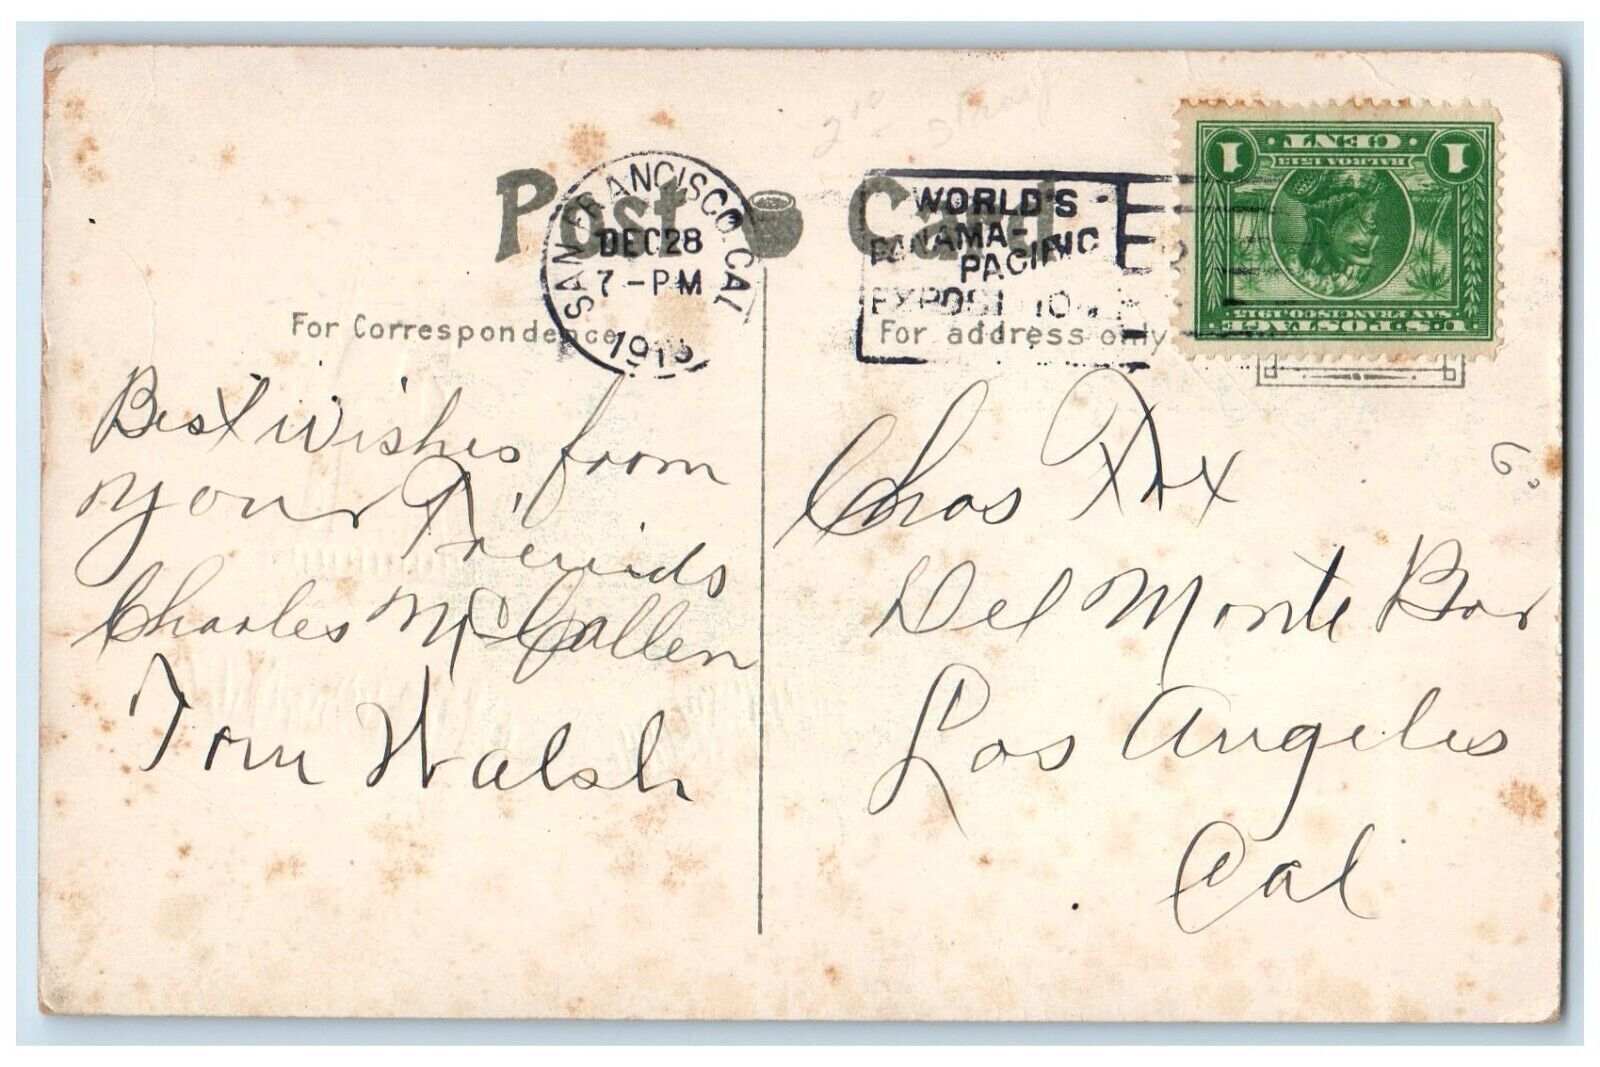 Post Card
SAN FRANCISCO. CAL
DEC 28
7-PM
WORLD'S
PANAMA-
PACIFIC
EXPOSITION
1 CENT 1
BALBOA 1513
U.S. POSTAGE
SAN FRANCISCO 1915
For Correspondence
For address only
Best Wishes from
your Freinds
Charles McCallen
Tom Walsh
Chas
Del Monte Bar
Los Angeles
Cal